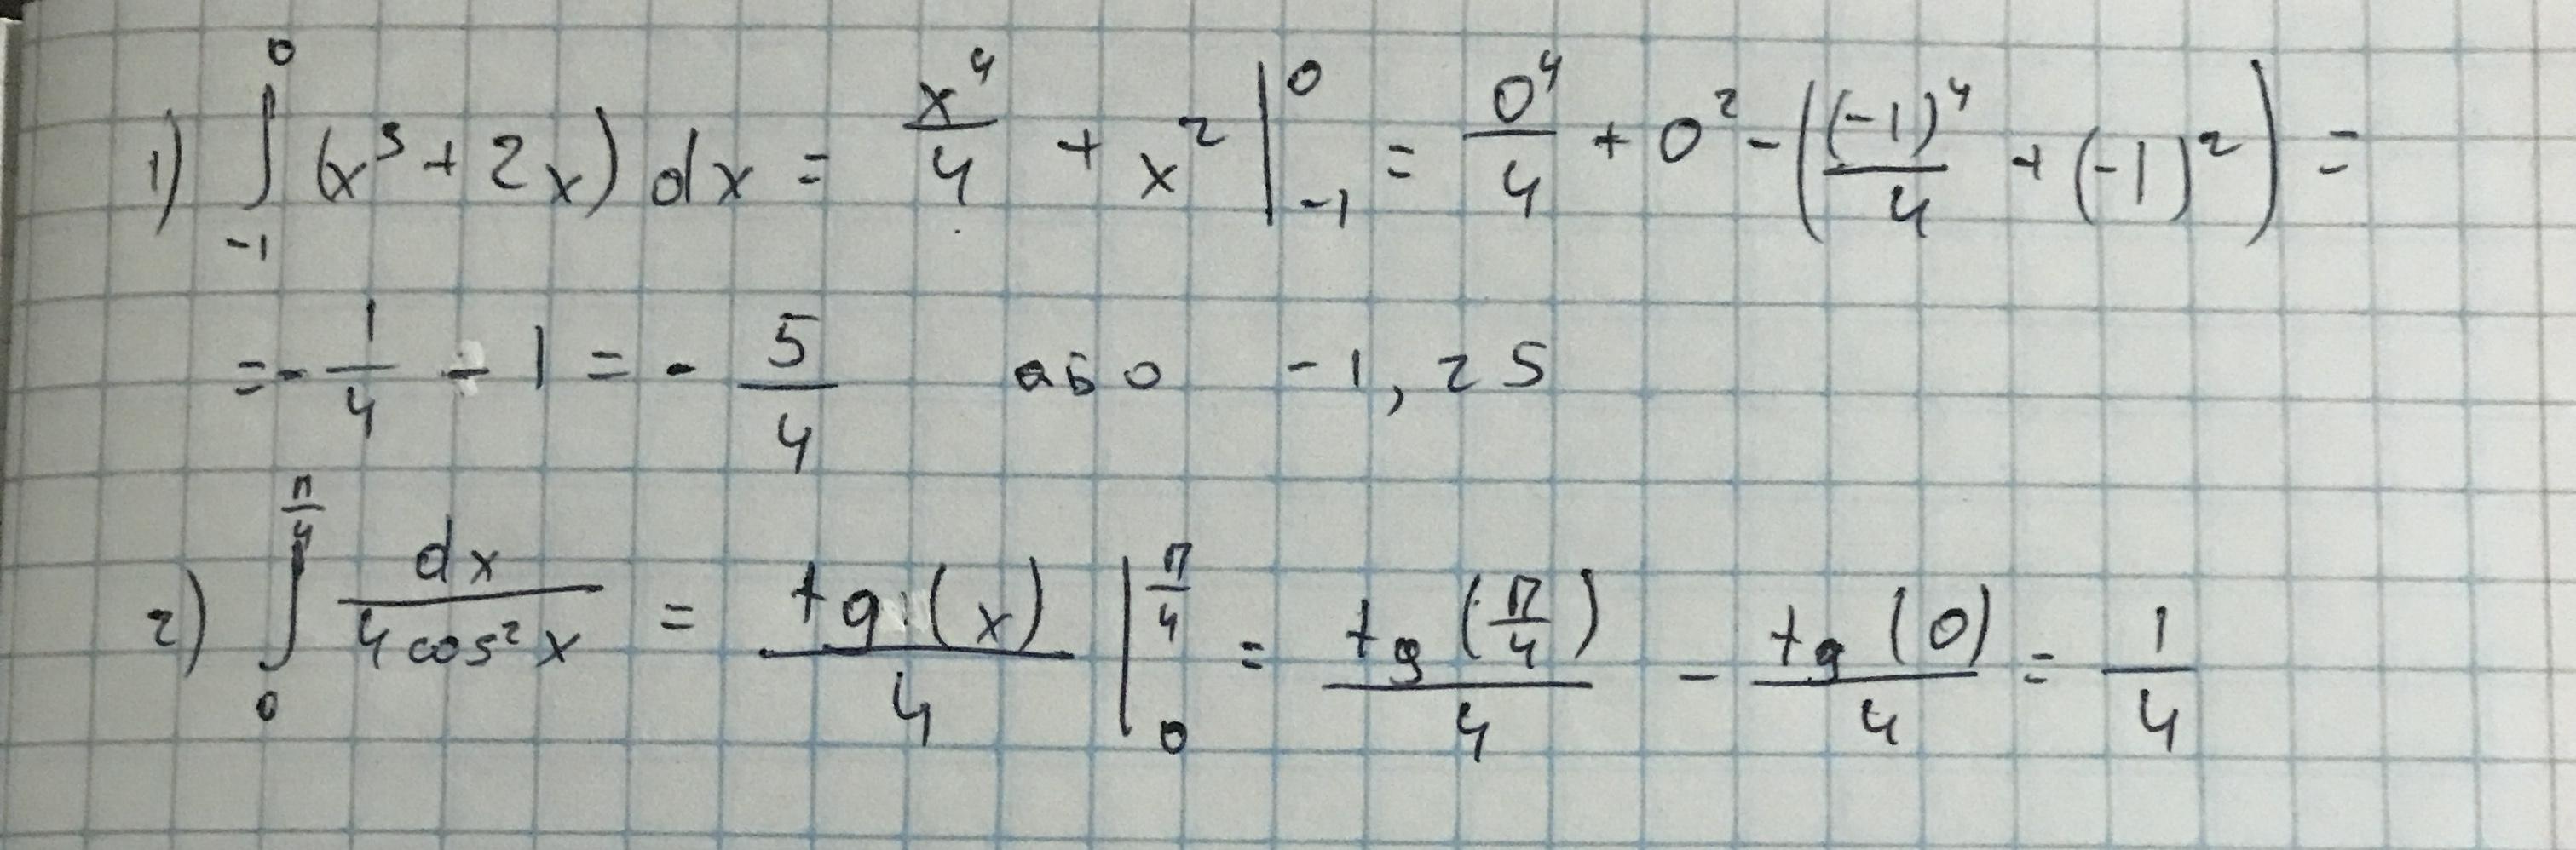 1) ∫₋₁⁰ (x³ + 2x) dx = x⁴/4 + x² |₋₁⁰ = 0⁴/4 + 0² - ((-1)⁴/4 + (-1)²) =
= - 1/4 - 1 = - 5/4 або -1,25
2) ∫₀^(π/4) dx/(4cos²x) = tg(x)/4 |₀^(π/4) = tg(π/4)/4 - tg(0)/4 = 1/4